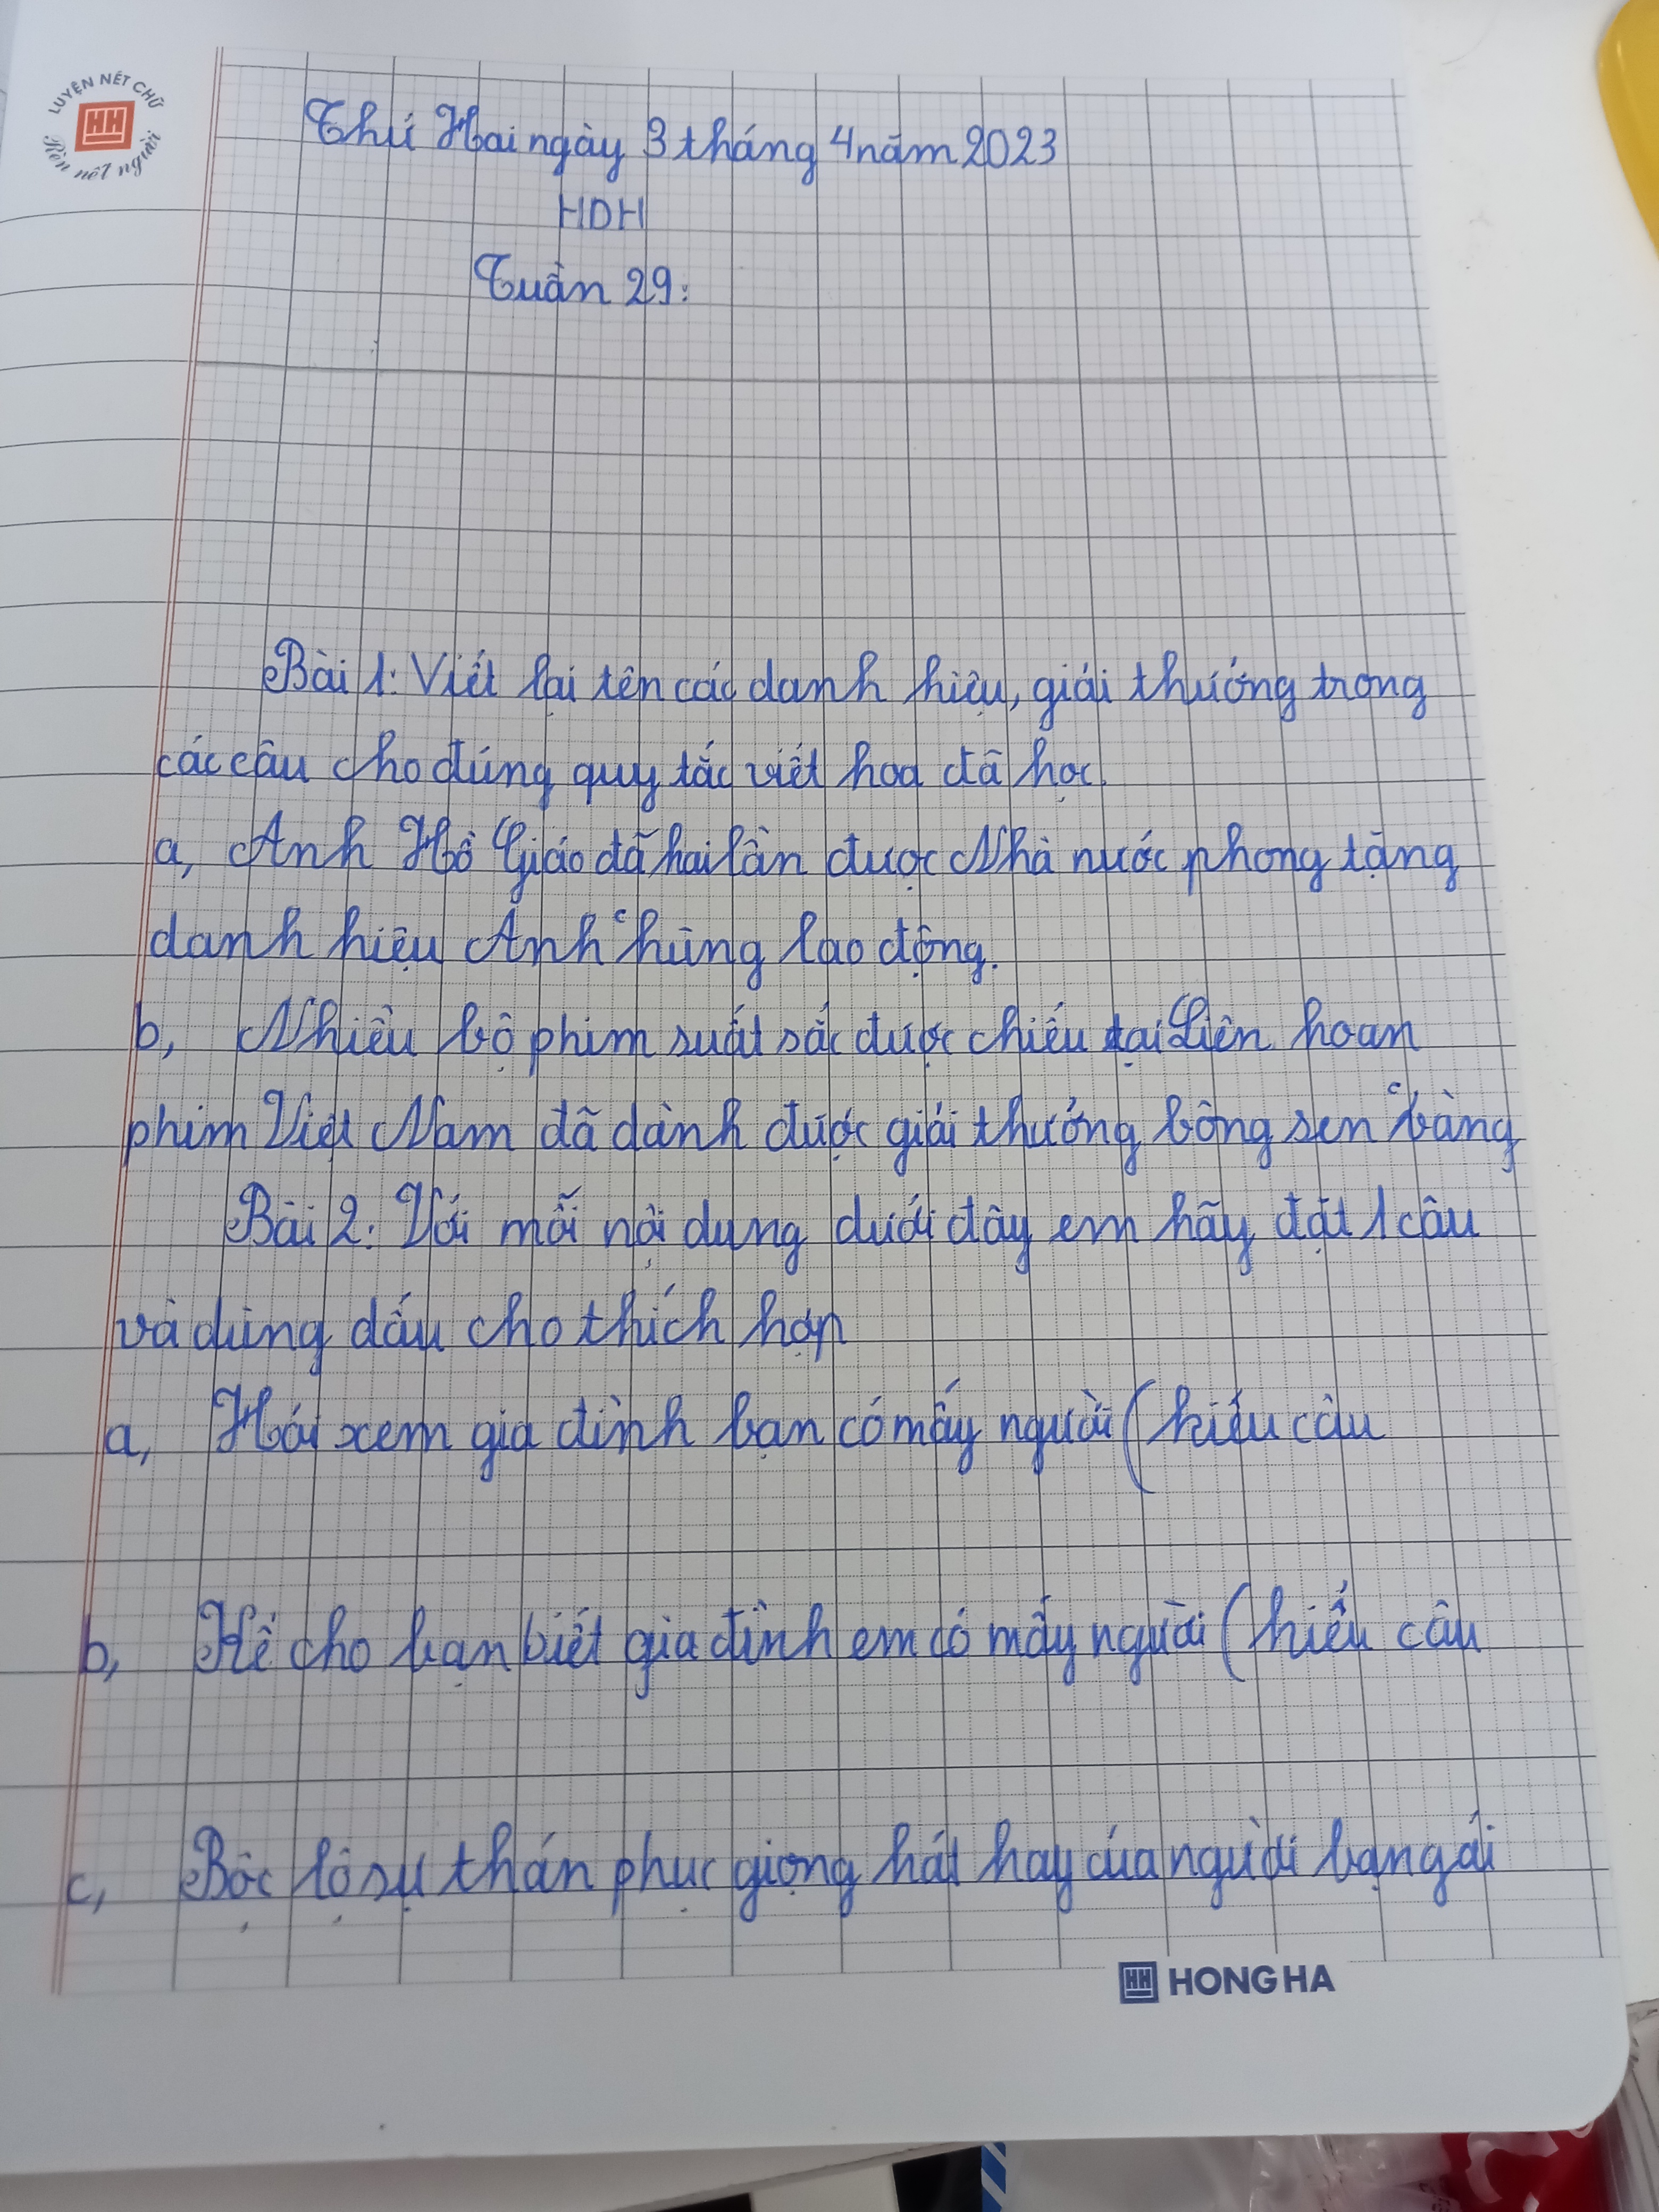 LUYỆN NÉT CHỮ
HH
Rèn nết người
Thứ Hai ngày 3 tháng 4 năm 2023
HDH
Tuần 29:
Bài 1: Viết lại tên các danh hiệu, giải thưởng trong
các câu cho đúng quy tắc viết hoa đã học.
a, Anh Hồ Giáo đã hai lần được Nhà nước phong tặng
danh hiệu Anh hùng lao động.
b, Nhiều bộ phim suất sắc được chiếu tại Liên hoan
phim Việt Nam đã dành được giải thưởng bông sen vàng
Bài 2: Với mỗi nội dung dưới đây em hãy đặt 1 câu
và dùng dấu cho thích hợp
a, Hỏi xem gia đình bạn có mấy người (kiểu câu
b, Kể cho bạn biết gia đình em có mấy người (kiểu câu
c, Bộc lộ sự thán phục giọng hát hay của người bạn gái
HH HONG HA